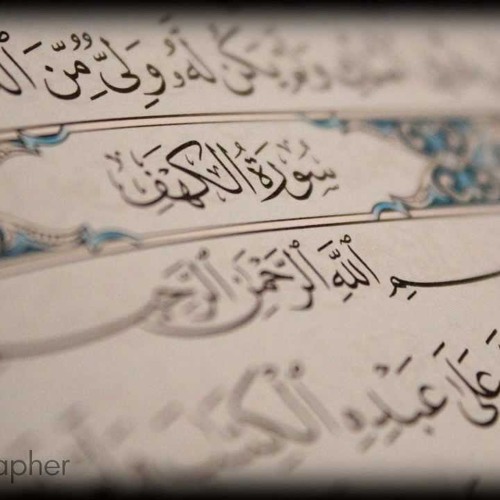 لَّهُۥ وَلِىٌّ مِّنَ
سُورَةُ الكَهْفِ
ٱللَّهِ ٱلرَّحْمَٰنِ ٱلرَّحِيمِ
عَلَىٰ عَبْدِهِ ٱلْكِتَٰبَ
apher